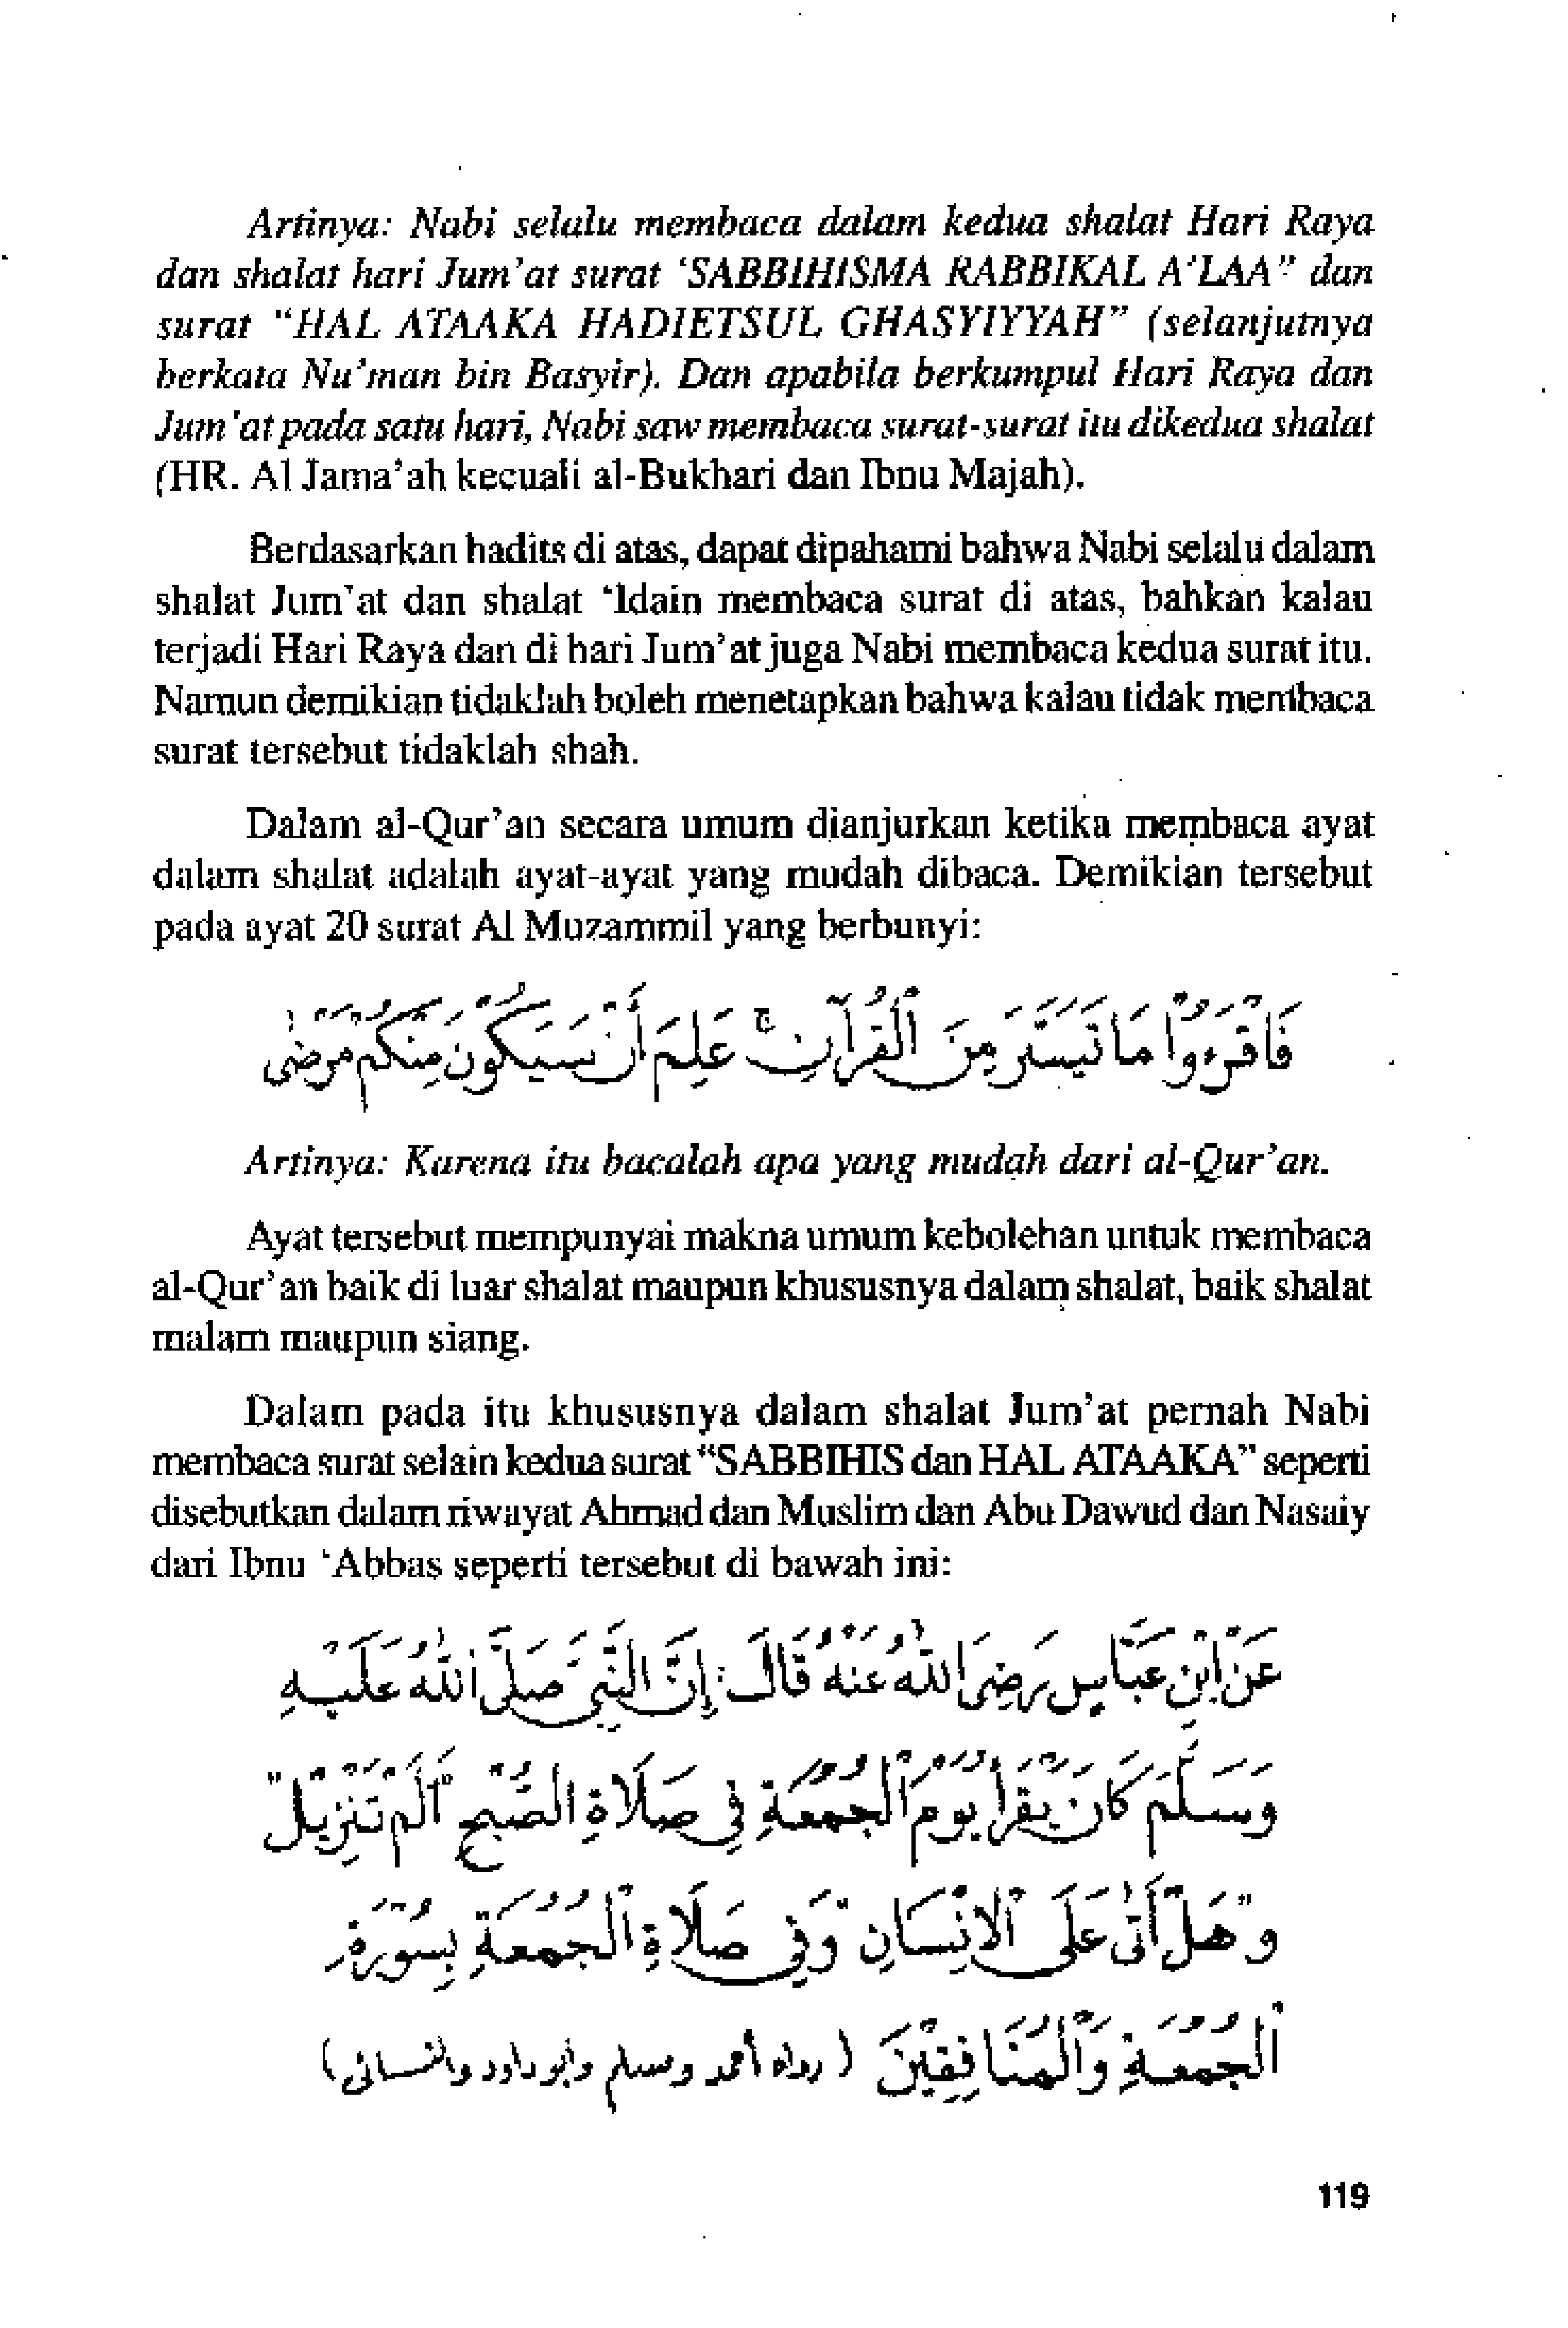 Artinya: Nabi selalu membaca dalam kedua shalat Hari Raya
dan shalat hari Jum'at surat 'SABBIHISMA RABBIKAL A'LAA" dan
surat "HAL ATAAKA HADIETSUL GHASYIYYAH" (selanjutnya
berkata Nu'man bin Basyir). Dan apabila berkumpul Hari Raya dan
Jum'at pada satu hari, Nabi saw membaca surat-surat itu dikedua shalat
(HR. Al Jama'ah kecuali al-Bukhari dan Ibnu Majah).
Berdasarkan hadits di atas, dapat dipahami bahwa Nabi selalu dalam
shalat Jum'at dan shalat 'Idain membaca surat di atas, bahkan kalau
terjadi Hari Raya dan di hari Jum'at juga Nabi membaca kedua surat itu.
Namun demikian tidaklah boleh menetapkan bahwa kalau tidak membaca
surat tersebut tidaklah shah.
Dalam al-Qur'an secara umum dianjurkan ketika membaca ayat
dalam shalat adalah ayat-ayat yang mudah dibaca. Demikian tersebut
pada ayat 20 surat Al Muzammil yang berbunyi:
فَاقْرَءُوا مَا تَيَسَّرَ مِنَ الْقُرْآنِ ۚ عَلِمَ أَنْ سَيَكُونُ مِنْكُمْ مَرْضَىٰ
Artinya: Karena itu bacalah apa yang mudah dari al-Qur'an.
Ayat tersebut mempunyai makna umum kebolehan untuk membaca
al-Qur'an baik di luar shalat maupun khususnya dalam shalat, baik shalat
malam maupun siang.
Dalam pada itu khususnya dalam shalat Jum'at pernah Nabi
membaca surat selain kedua surat "SABBIHIS dan HAL ATAAKA" seperti
disebutkan dalam riwayat Ahmad dan Muslim dan Abu Dawud dan Nasaiy
dari Ibnu 'Abbas seperti tersebut di bawah ini:
عَنِ ابْنِ عَبَّاسٍ رَضِيَ اللهُ عَنْهُ قَالَ: إِنَّ النَّبِيَّ صَلَّى اللهُ عَلَيْهِ
وَسَلَّمَ كَانَ يَقْرَأُ يَوْمَ الْجُمُعَةِ فِي صَلَاةِ الصُّبْحِ "الم تَنْزِيلُ"
و"هَلْ أَتَى عَلَى الْاِنْسَانِ" وَفِي صَلَاةِ الْجُمُعَةِ بِسُورَةِ
الْجُمُعَةِ وَالْمُنَافِقِيْنَ (رواه أحمد ومسلم وابوداود والنسائى)
119